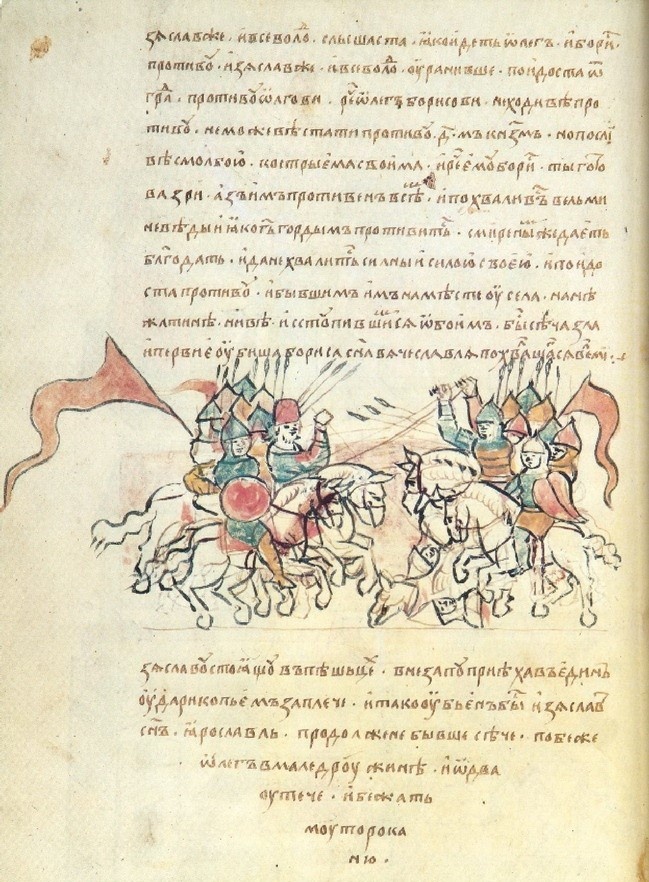 зѧславже · ивсеволѡ · слышаста · ꙗкойдеть ѡлегъ · иборй ·
противоу · изѧславже · ивсеволѡ · оуранивше · поидоста ѿ
гра · противоу ѡлгови · рѐ ѡлегъ борисови · неходивѣ про
тивоу · неможевѣ стати противоу · д҃ · мъ кнѧземъ · но послѝ
вѣ смолбою · кострыема своима · ирѐ ему борй · ты гото
ва зри · азъ имъ противенъ всѣ · ипохваливъ вельми
невѣды и ꙗко бгъ гордымъ противитъ · смиреныжедаеть
блгодать · иданехвалитсѧ силныи силою своею · ипоидо
ста противоу · ибывшимъ имъ намѣсте оу села · на нѣ
жатинѣ · нивѣ · исстоупившисѧ ѡбоимъ · бысѣча зла
ипервие оубиша бориса сн҃а вѧчеславлѧ похвалшасѧ велми ·
зѧславоу стоѧщоу въ пѣшьце · внезапу приѣхавъ единъ
оударикопьемъ заплече · итако оубьенъ бы изѧславъ
сн҃ъ · ꙗрославль · продолжене бывше сѣче · побеже
ѡлегъ вмале дроужинѣ · и ѡдва
оутече · ибежать
моуторока
ню ·